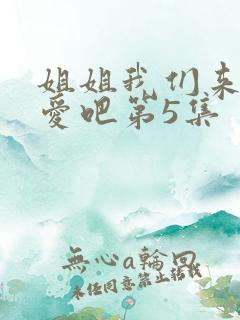 姐姐我们来
愛吧第5集
無心a輪回
未经同意禁止转载